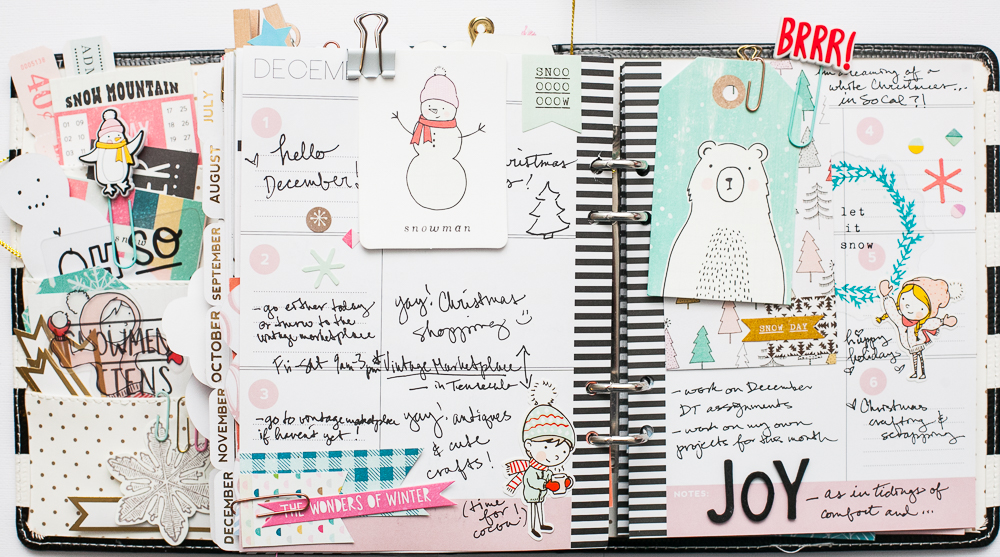 40¢
ADM
SNOW MOUNTAIN
01 09 17
02
03 19
OH
SO
SNOWMEN
MITTENS
JULY
AUGUST
SEPTEMBER
OCTOBER
NOVEMBER
DECEMBER
DECEM
1
hello
December!
snowman
SNOO
OOOO
OOOW
Christmas
2
- go either today
or thurs to the
vintage marketplace
yay! Christmas
shopping
Fri-Sat 9am-3pm Vintage Marketplace
in Temecula
3
- go to vintage marketplace
if haven't yet!
yay! antiques
& cute
crafts!
(time
for
cocoa!)
THE WONDERS OF WINTER
BRRR!
I'm dreaming of a
white Christmas...
in SoCal?!
4
let
it
snow
5
SNOW DAY
happy
holidays
6
- work on December
DT assignments
- work on my own
projects for this month
Christmas
crafting &
scrapping
NOTES
JOY
- as in tidings of
comfort and...